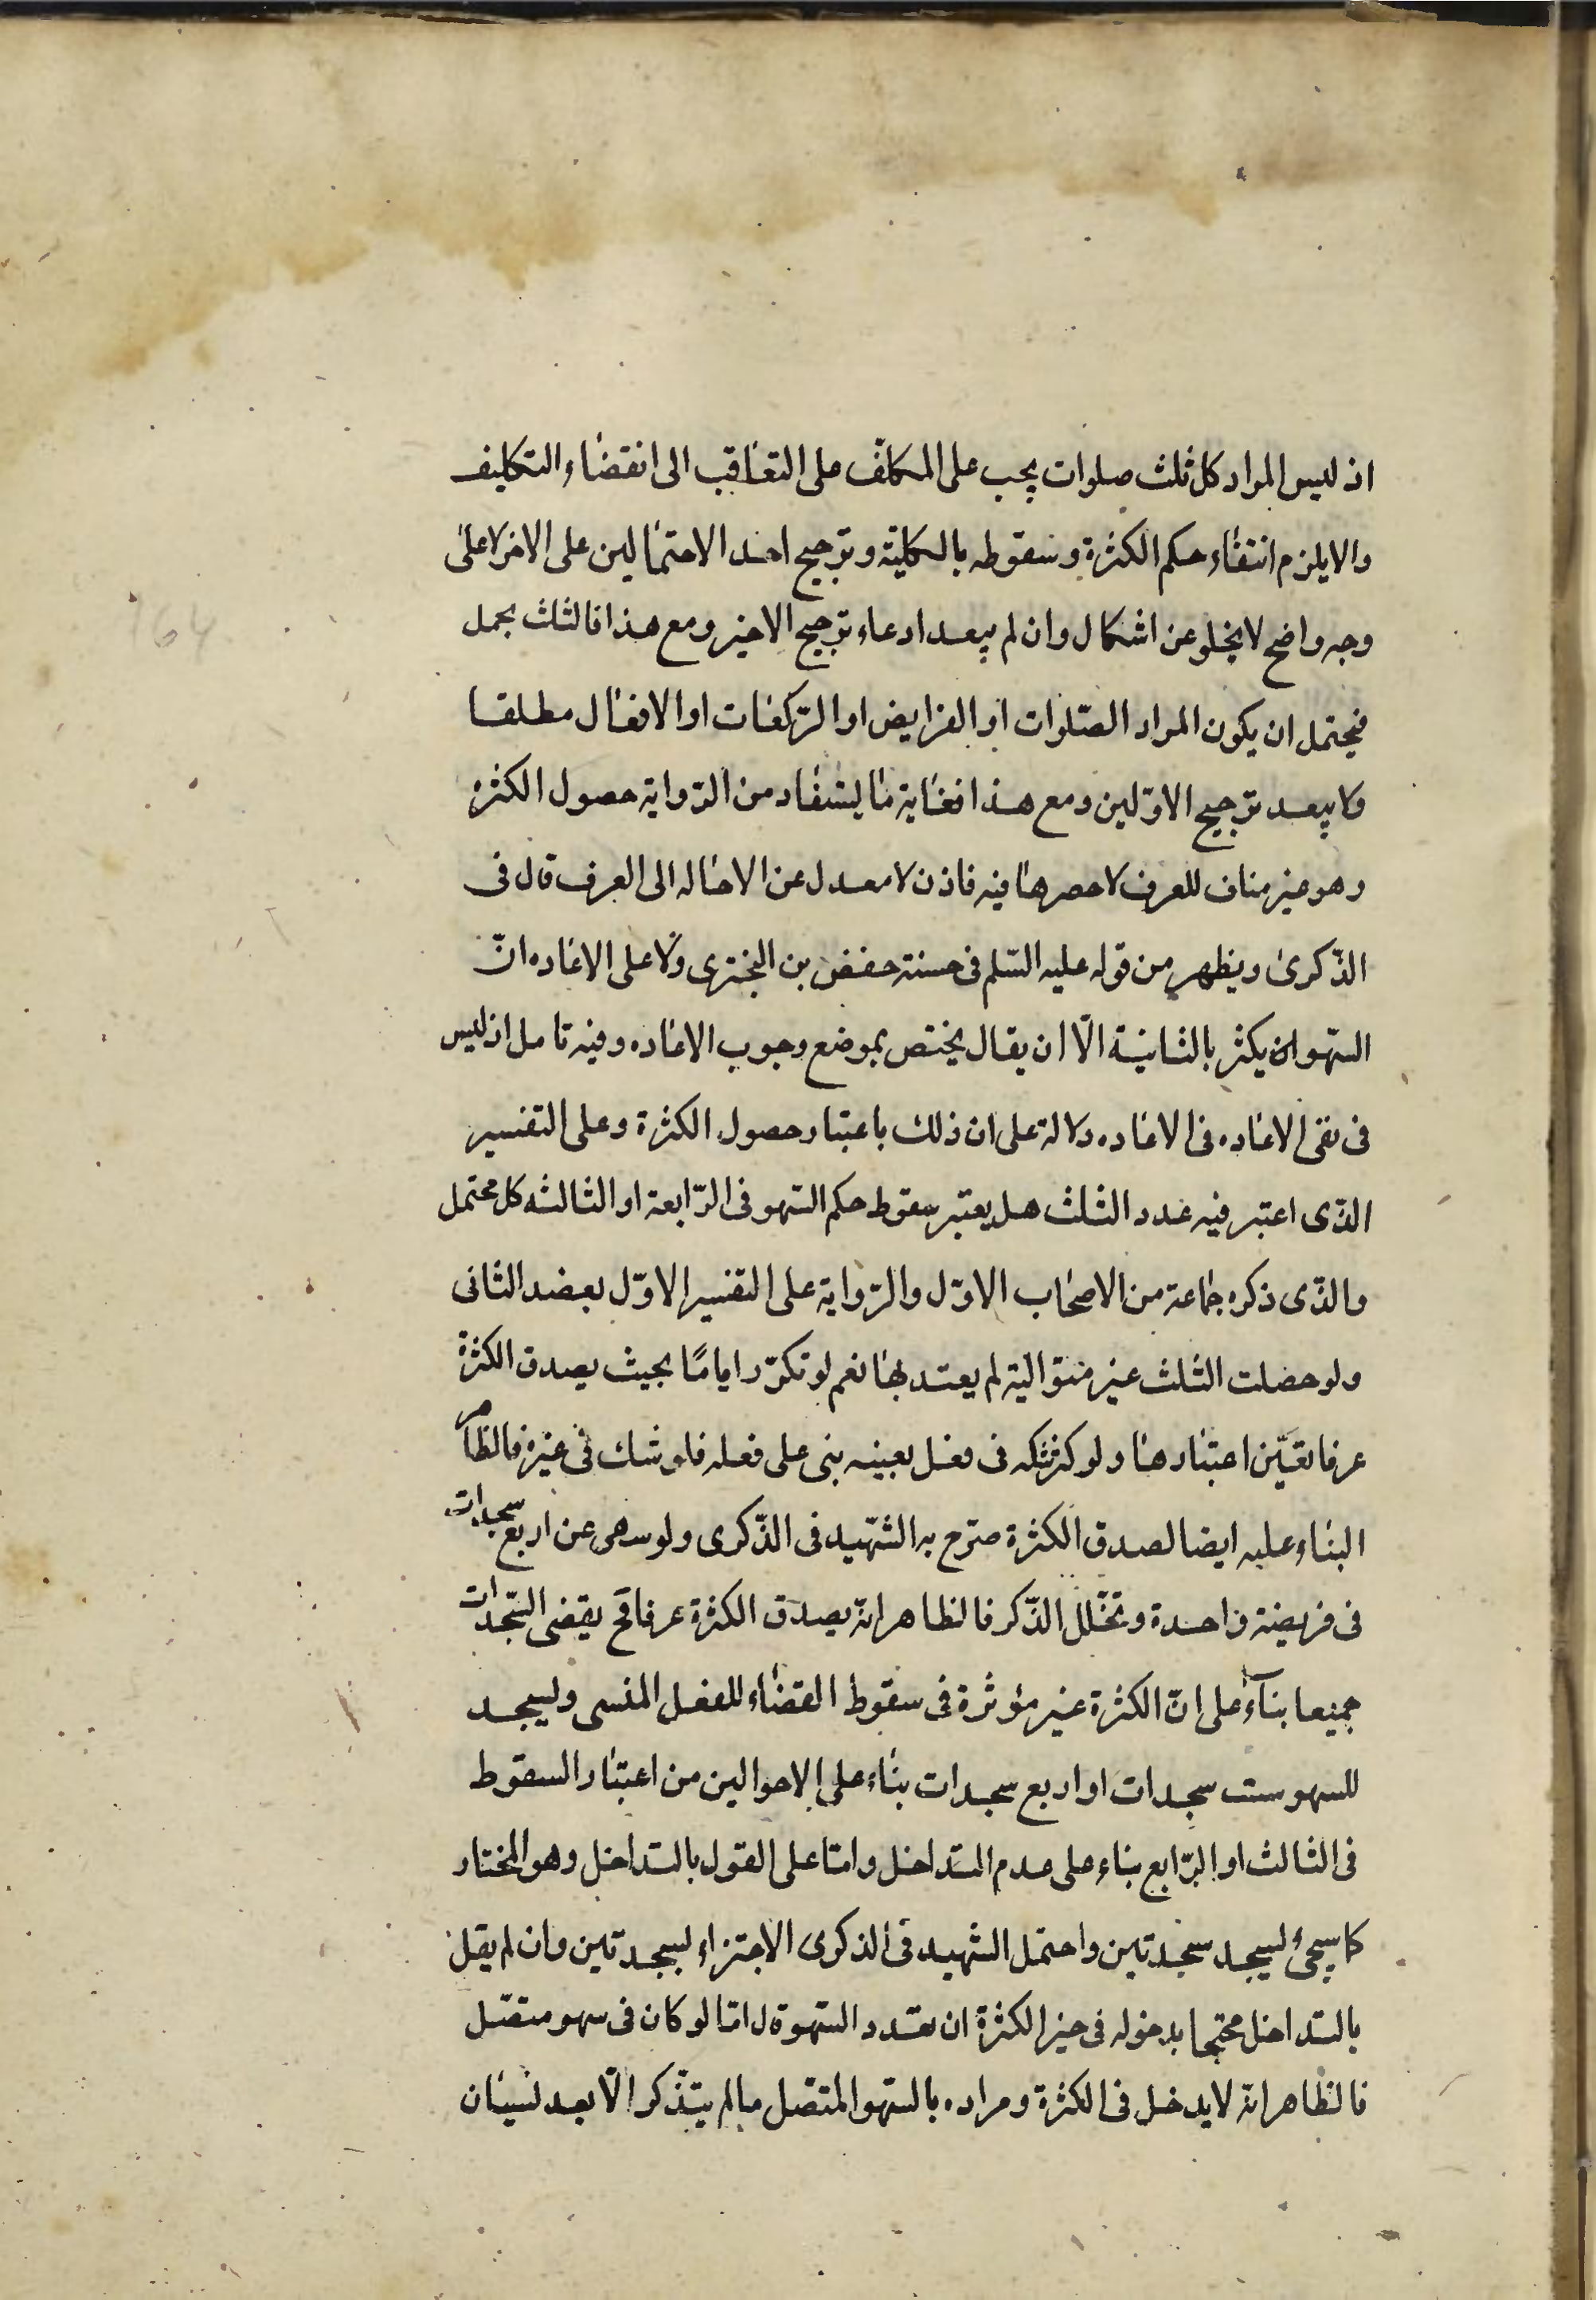 اذ ليس المراد كل ثلث صلوات يجب على المكلّف على التعاقب الى انقضاء التكليف
والا يلزم انتفاء حكم الكثرة وسقوطه بالكليّة وترجيح احد الاحتمالين على الاخر لا على
وجه واضح لا يخلو عن اشكال وان لم يبعد ادعاء ترجيح الاخير ومع هذا فالثلث مجمل
فيحتمل ان يكون المراد الصّلوات او الفرايض او الرّكعات او الافعال مطلقا
ولا يبعد ترجيح الاوّلين ومع هذا فغاية ما يستفاد من الرّواية حصول الكثرة
وهو غير مناف للعرف لا حصرها فيه فاذن لا معدل عن الاحاله الى العرف قال فى
الذّكرى ويظهر من قوله عليه السّلم فى حسنة حفص بن البخترى ولا على الاعاده انّ
السّهو ان يكثر بالثانية الّا ان يقال يختص بموضع وجوب الاعاده وفيه تامل اذ ليس
فى نفى الاعاده فى الاعاده دلالة على ان ذلك باعتبار حصول الكثرة وعلى التفسير
الذّى اعتبر فيه عدد الثلث هل يعتبر سقوط حكم السّهو فى الرّابعة او الثالثه كل محتمل
والذّى ذكره جماعة من الاصحاب الاوّل والرّواية على التفسير الاوّل يعضد الثانى
ولو حصلت الثلث غير متوالية لم يعتد بها نعم لو تكرّر اياما بحيث يصدق الكثرة
عرفا تعيّن اعتبارها ولو كثر شكه فى فعل بعينه بنى على فعله فلو شك فى غيره فالظاهر
البناء عليه ايضا لصدق الكثرة صرّح به الشّهيد فى الذّكرى ولو سهى عن اربع سجدات
فى فريضة واحدة وتخلّل الذّكر فالظاهر انّه يصدق الكثرة عرفا فح يقضى السّجدات
جميعا بناءً على انّ الكثرة غير مؤثرة فى سقوط القضاء للفعل المنسى وليسجد
للسهو ست سجدات او اربع سجدات بناء على الاحوالين من اعتبار السقوط
فى الثالث او الرّابع بناء على عدم التداخل وامّا على القول بالتداخل وهو المختار
كما سيجئ ليسجد سجدتين واحتمل الشهيد فى الذكرى الاجتزاء بسجدتين وان لم يقل
بالتداخل محتجا بدخوله فى حيز الكثرة ان تعدد السّهو قال امّا لو كان فى سهو متصّل
فالظاهر انّه لا يدخل فى الكثرة ومراده بالسّهو المتّصل ما لم يتذّكر الّا بعد نسيان